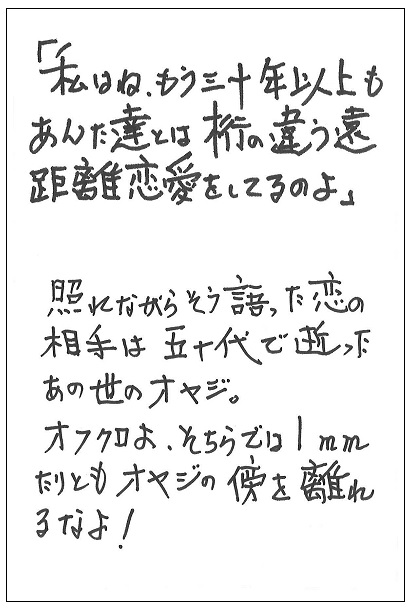 「私はね、もう三十年以上も
あんた達とは桁の違う遠
距離恋愛をしてるのよ」
照れながらそう語った恋の
相手は五十代で逝った
あの世のオヤジ。
オフクロよ、そちらでは1mm
たりともオヤジの傍を離れ
るなよ!